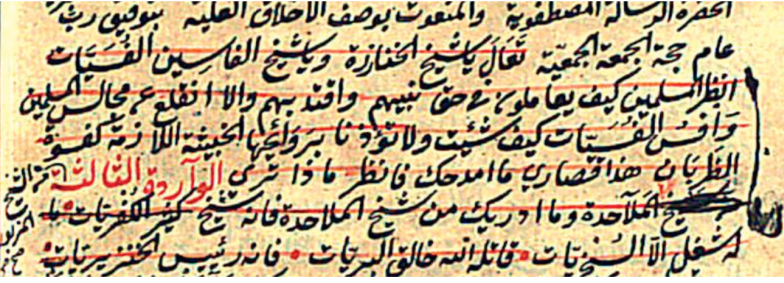 الحضرة الرسالة المصطفوية والمنعوت بوصف الاخلاق العلية بتوفيق رب
عام حجة الجمعة الجمعية تعال ياشيخ الخنازرة وياشيخ الفاسين الفسيات
انظر المسلمين كيف يعاملون في حق نبيهم واقتد بهم والا انقلع عن مجالس المسلمين
وافس الفسيات كيف شئت ولا تؤذنا بروائحها الخبيثة اللازمة كفسوة
الظربان هذا قصاري ما امدحك فانظر ماذا ترى الواردة الثالثة
شيخ الملاحدة وما ادريك من شيخ الملاحدة فانه شيخ كفر الكفريات
له شغل الا السخريات قاتله الله خالق البريات فانه رئيس الخنزيريات